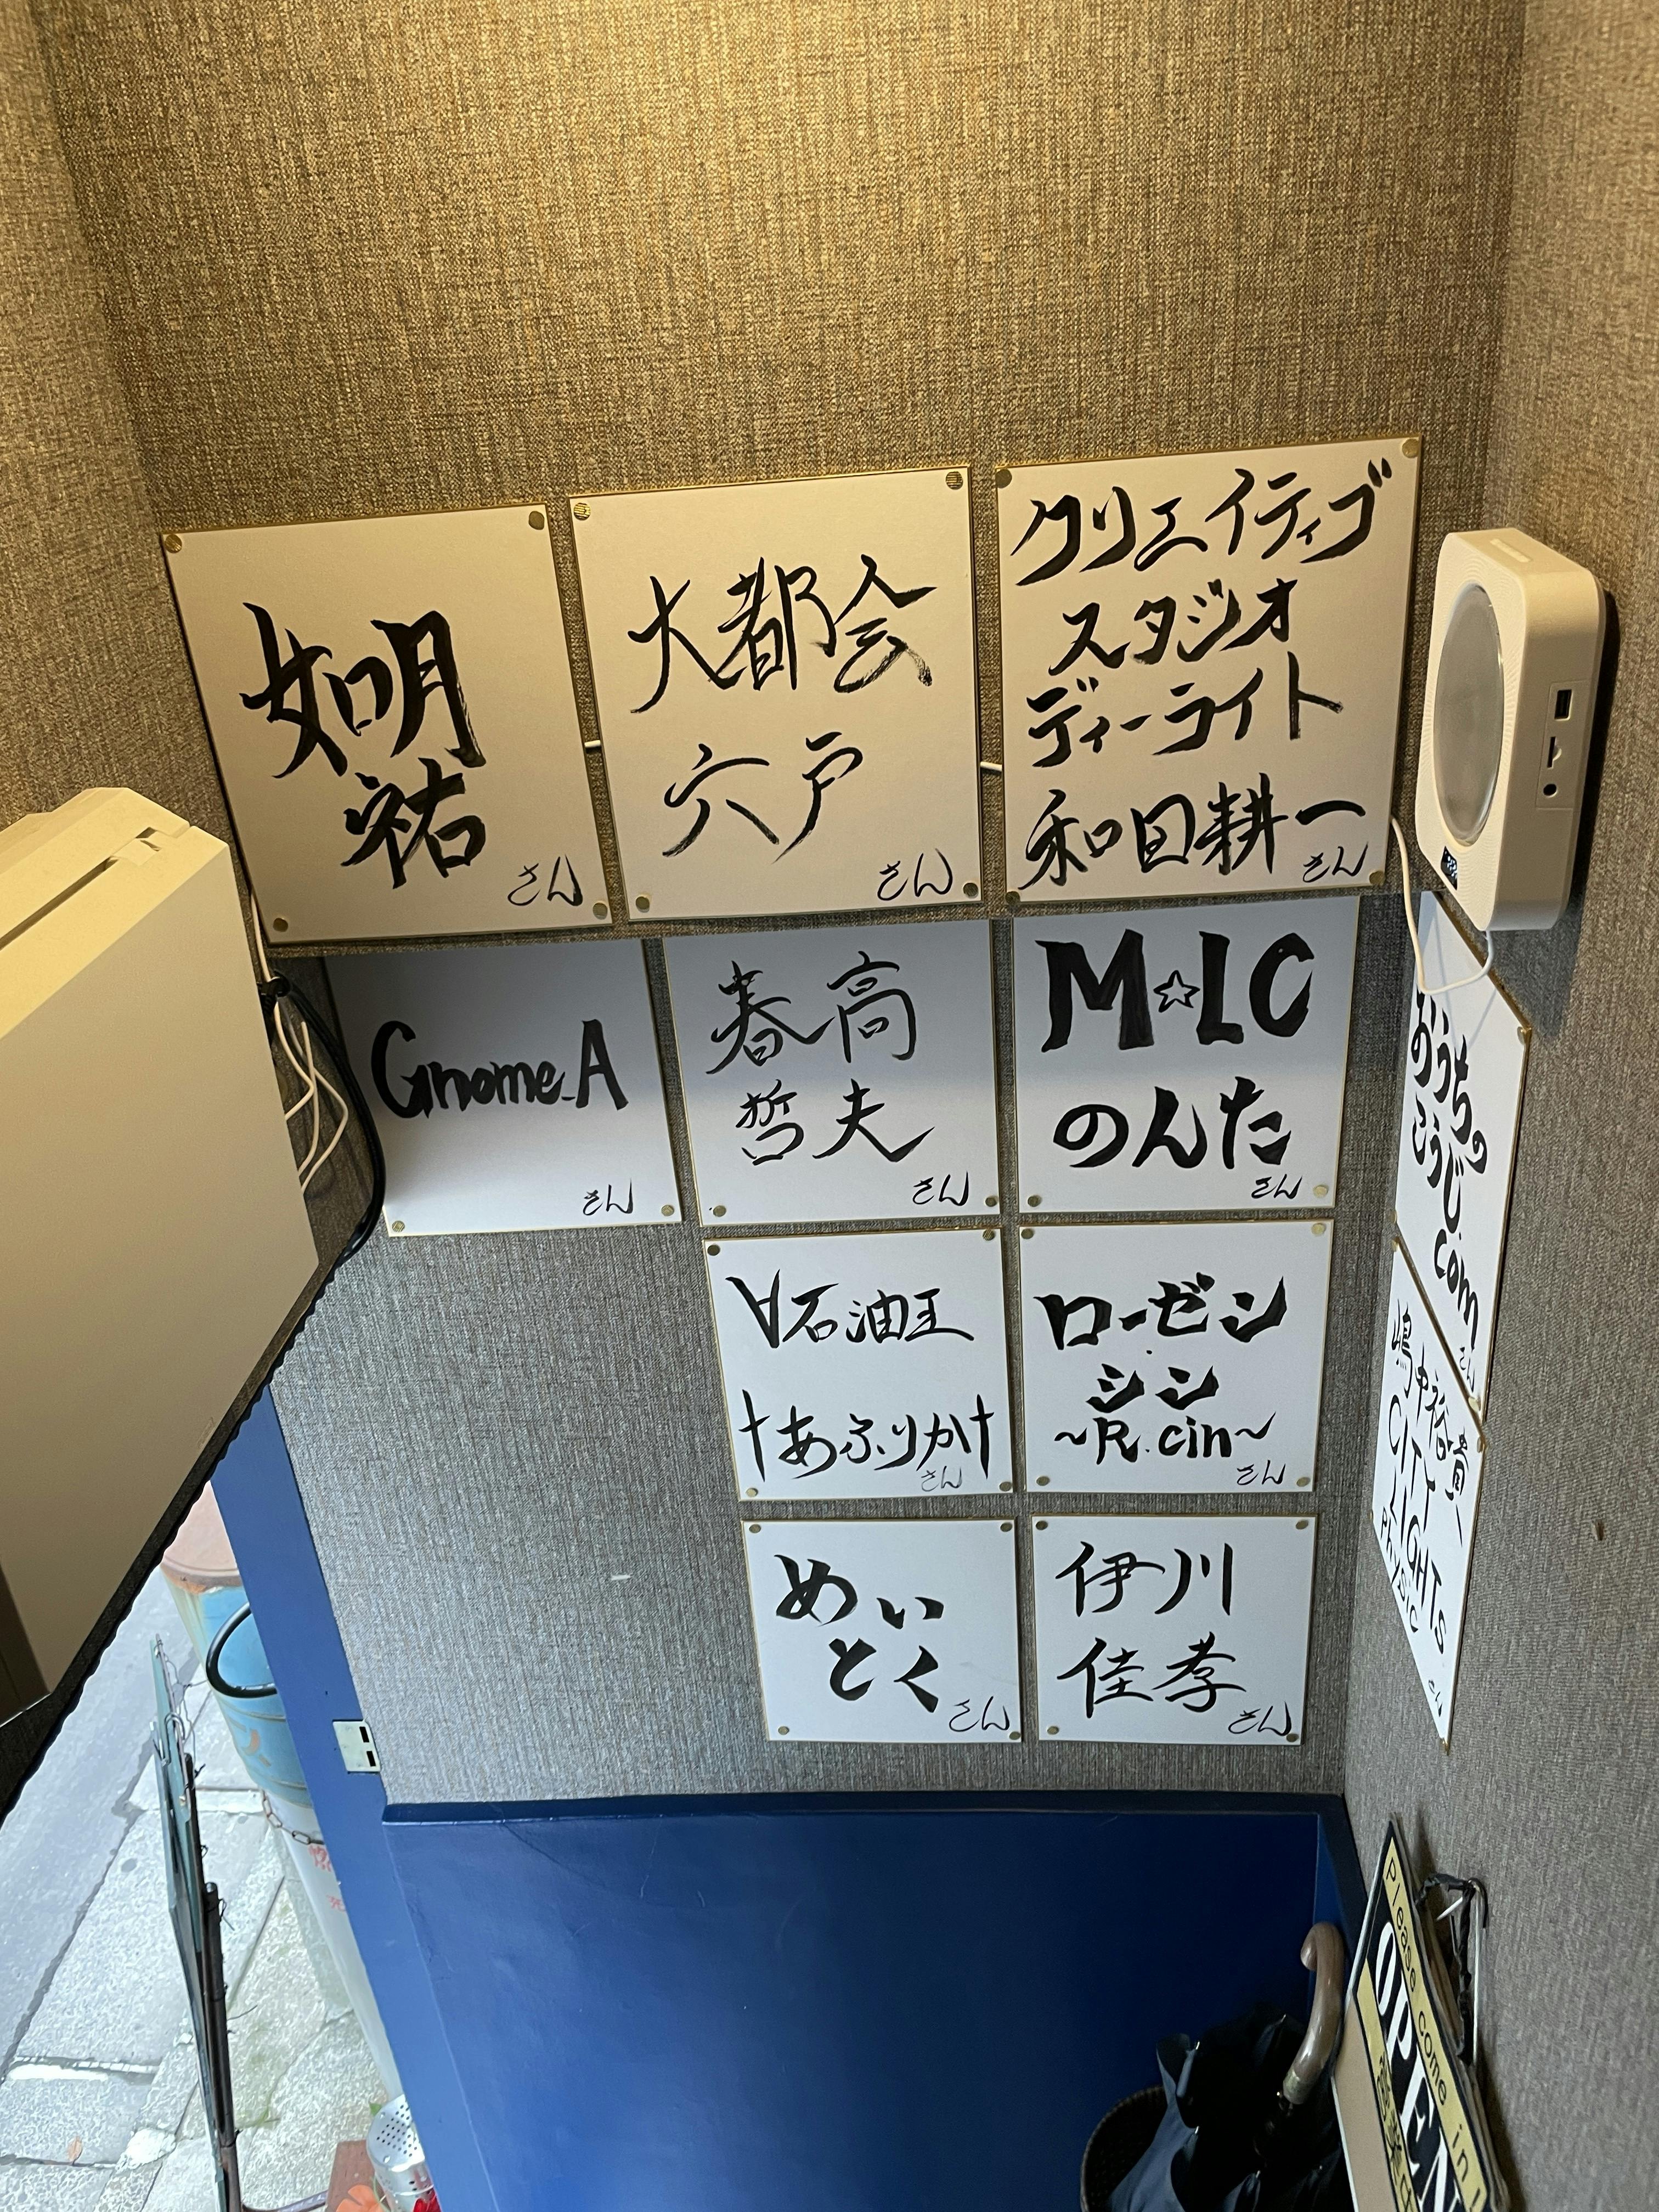 如月
祐
さん
大都会
宍戸
さん
クリエイティブ
スタジオ
ディーライト
和田耕一
さん
Gnome_A
さん
春高
哲夫
さん
M☆LC
のんた
さん
∀石油王
†あふりか†
さん
ローゼン
シン
~R.cin~
さん
めい
とく
さん
伊川
佳孝
さん
おうちの
こうじ.com
さん
嶋中裕貴
CITY
LIGHTS
Physic
さん
Please come in!
OPEN